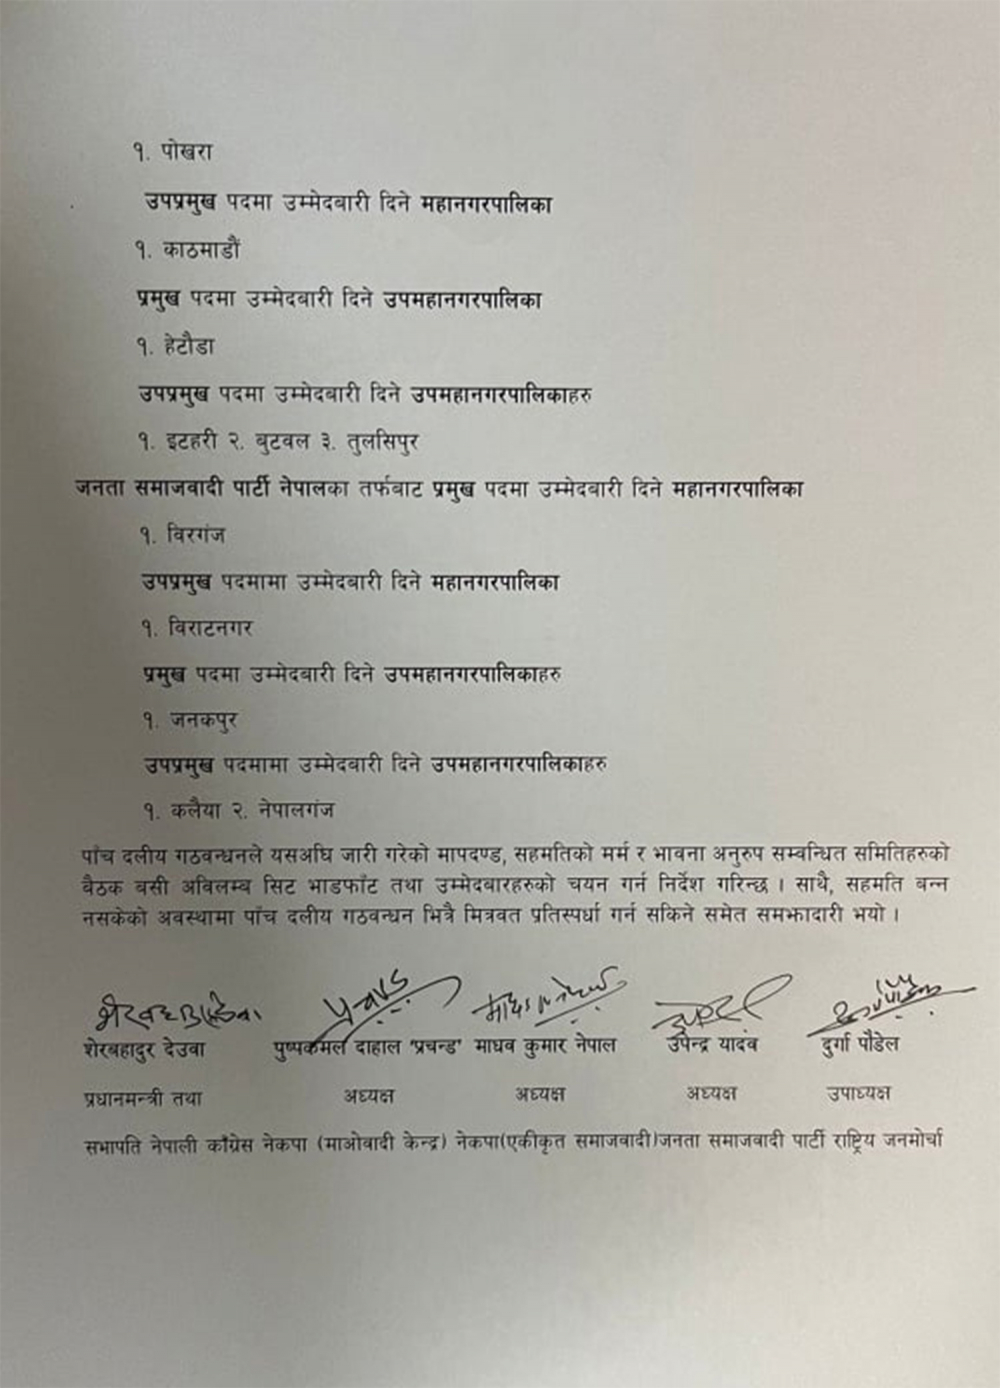 १. पोखरा
उपप्रमुख पदमा उम्मेदबारी दिने महानगरपालिका
१. काठमाडौं
प्रमुख पदमा उम्मेदबारी दिने उपमहानगरपालिका
१. हेटौडा
उपप्रमुख पदमा उम्मेदबारी दिने उपमहानगरपालिकाहरु
१. इटहरी २. बुटवल ३. तुलसिपुर
जनता समाजवादी पार्टी नेपालका तर्फबाट प्रमुख पदमा उम्मेदबारी दिने महानगरपालिका
१. विरगंज
उपप्रमुख पदमामा उम्मेदबारी दिने महानगरपालिका
१. विराटनगर
प्रमुख पदमा उम्मेदबारी दिने उपमहानगरपालिकाहरु
१. जनकपुर
उपप्रमुख पदमामा उम्मेदबारी दिने उपमहानगरपालिकाहरु
१. कलैया २. नेपालगंज
पाँच दलीय गठवन्धनले यसअघि जारी गरेको मापदण्ड, सहमतिको मर्म र भावना अनुरुप सम्वन्धित समितिहरुको
बैठक बसी अविलम्ब सिट भाडफाँट तथा उम्मेदबारहरुको चयन गर्न निर्देश गरिन्छ । साथै, सहमति बन्न
नसकेको अवस्थामा पाँच दलीय गठवन्धन भित्रै मित्रवत प्रतिस्पर्धा गर्न सकिने समेत समझादारी भयो ।
शेरबहादुर देउवा पुष्पकमल दाहाल 'प्रचन्ड' माधव कुमार नेपाल उपेन्द्र यादव दुर्गा पौडेल
प्रधानमन्त्री तथा अध्यक्ष अध्यक्ष अध्यक्ष उपाध्यक्ष
सभापति नेपाली काँग्रेस नेकपा (माओवादी केन्द्र) नेकपा(एकीकृत समाजवादी)जनता समाजवादी पार्टी राष्ट्रिय जनमोर्चा